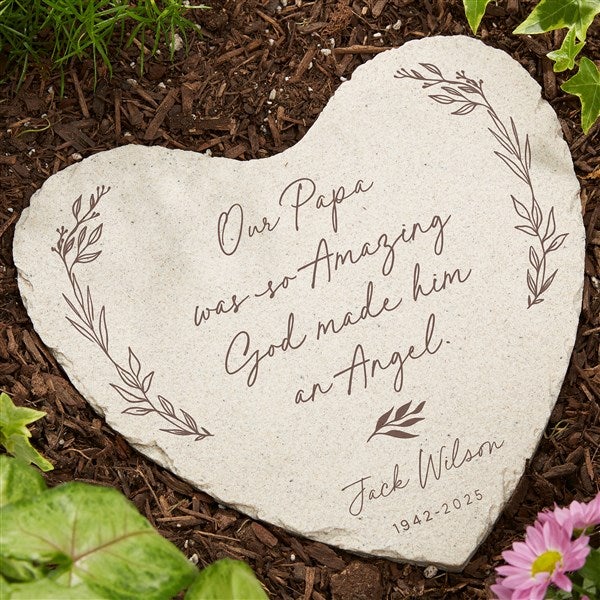 Our Papa
was so Amazing
God made him
an Angel.
Jack Wilson
1942-2025